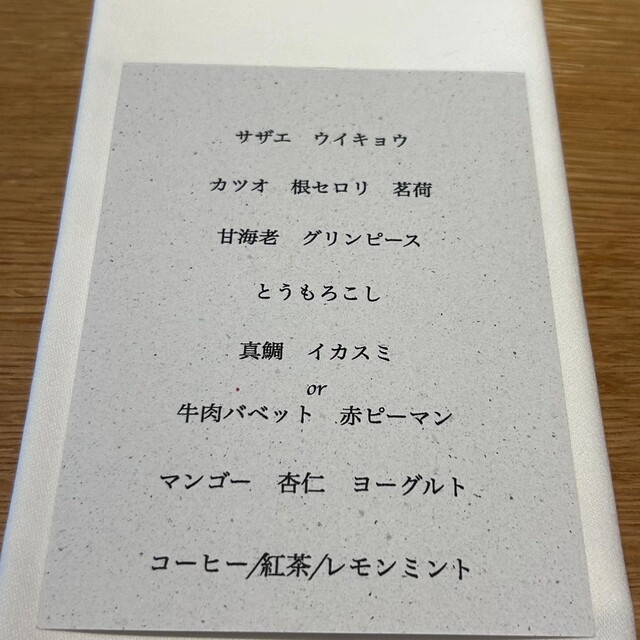 サザエ　ウイキョウ
カツオ　根セロリ　茗荷
甘海老　グリンピース
とうもろこし
真鯛　イカスミ
or
牛肉バベット　赤ピーマン
マンゴー　杏仁　ヨーグルト
コーヒー/紅茶/レモンミント